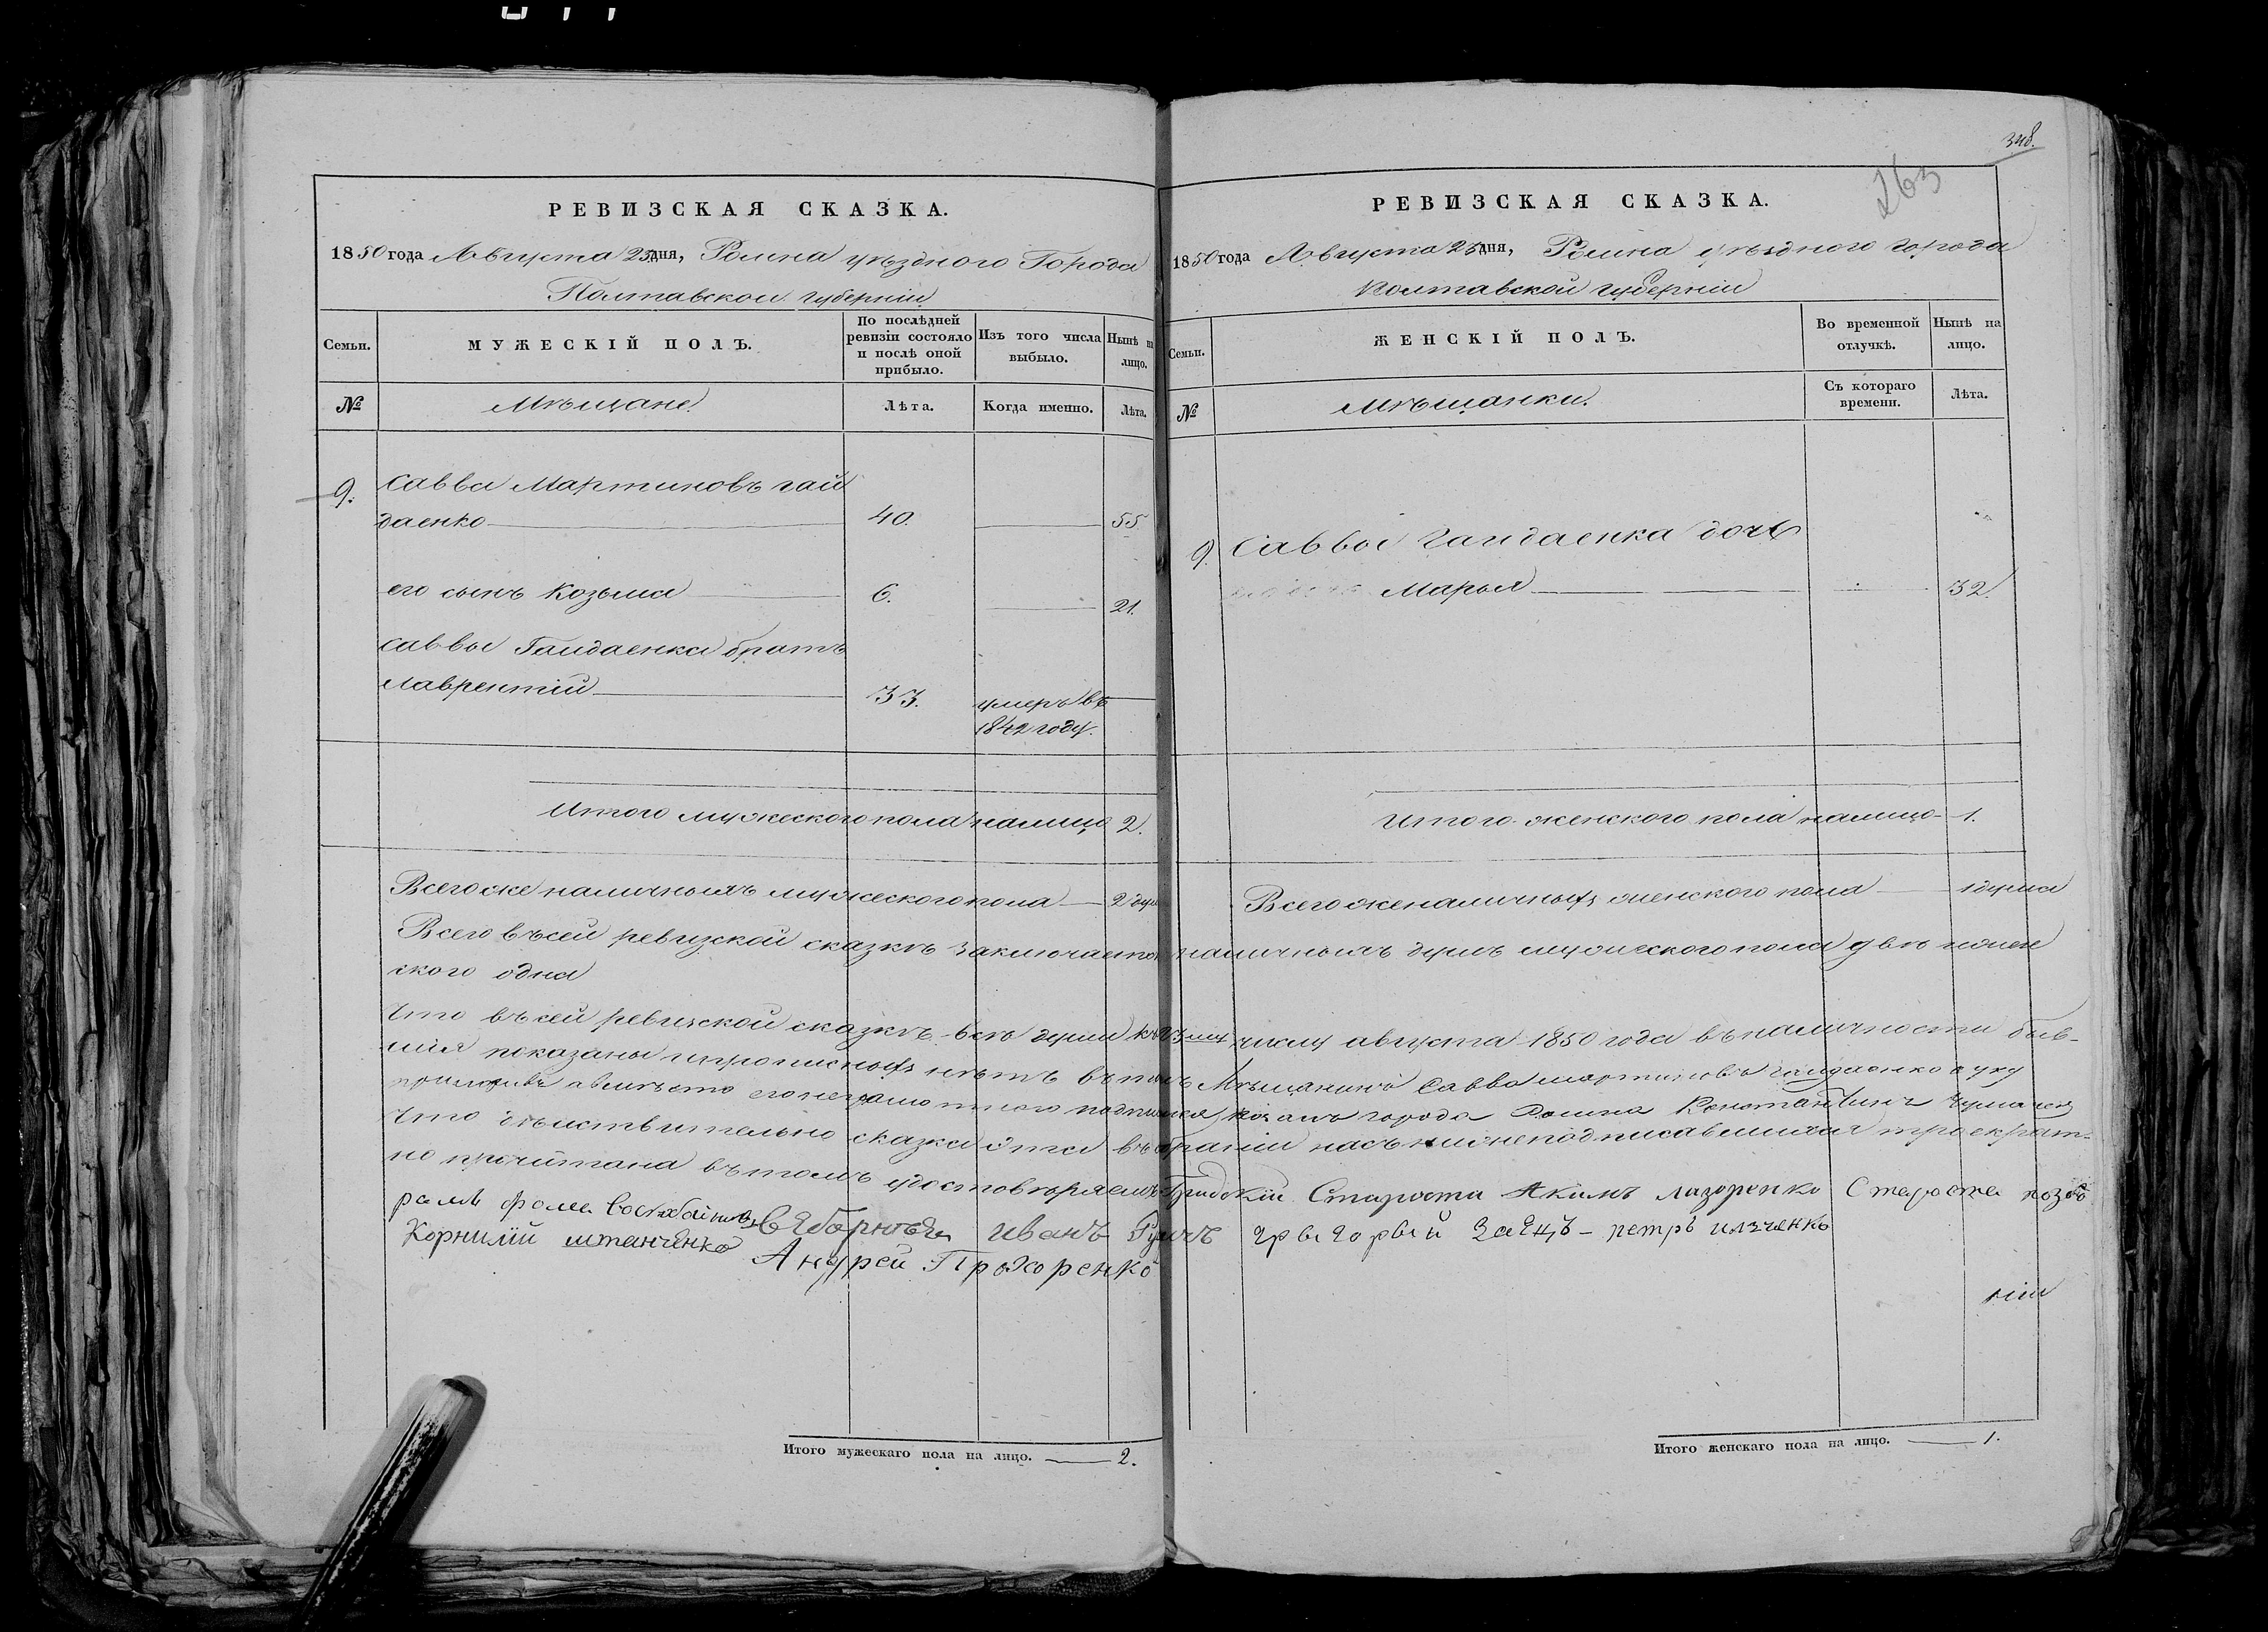 348.
263
РЕВИЗСКАЯ СКАЗКА.
1850 года Августа 23 дня, Ромна уѣзднаго Города
Полтавской губерніи
Семьи.
МУЖЕСКІЙ ПОЛЪ.
По послѣдней ревизіи состояло и послѣ оной прибыло.
Изъ того числа выбыло.
Нынѣ на лицо.
№
Мѣщане.
Лѣта.
Когда именно.
Лѣта.
9. Савва Мартиновъ гай
даенко 40. 55
его сынъ Козьма 6. 21.
Саввы Гайдаенка братъ
Лаврентій 33. умеръ въ
1842 году.
Итого мужеского пола налицо 2.
Всего же наличныхъ мужеского пола 2 душ
РЕВИЗСКАЯ СКАЗКА.
1850 года Августа 23 дня, Ромна уѣздного города
Полтавской губерніи
Семьи.
ЖЕНСКІЙ ПОЛЪ.
Во временной отлучкѣ.
Нынѣ на лицо.
№
Мѣщанки.
Съ котораго времени.
Лѣта.
9. Саввы Гайдаенка дочь
Марья 32.
Итого женского пола налицо 1.
Всего же наличныхъ женского пола 1 душа
Всего въ сей ревизской сказкѣ заключается наличныхъ душъ мужеского пола двѣ и жен
ского одна
Что въ сей ревизской сказкѣ всѣ души къ числу августа 1850 года въ наличности быв-
шія показаны и прописныхъ нѣтъ въ томъ Мѣщанинъ Савва Мартиновъ Гайдаенко а
вмѣсто его неграмотного подписался города Ромна Константинъ
Что дѣйствительно сказка эта въ собраніи насъ нижеподписавшихся троекрат-
но прочитана въ томъ удостовѣряемъ Градскій Староста Акимъ Лазоренко Староста
Фома Выборные иванъ Григорѣй Заецъ - петръ
Корнилій штанченко Андрей Прохоренко
Итого мужескаго пола на лицо. 2.
Итого женскаго пола на лицо. 1.